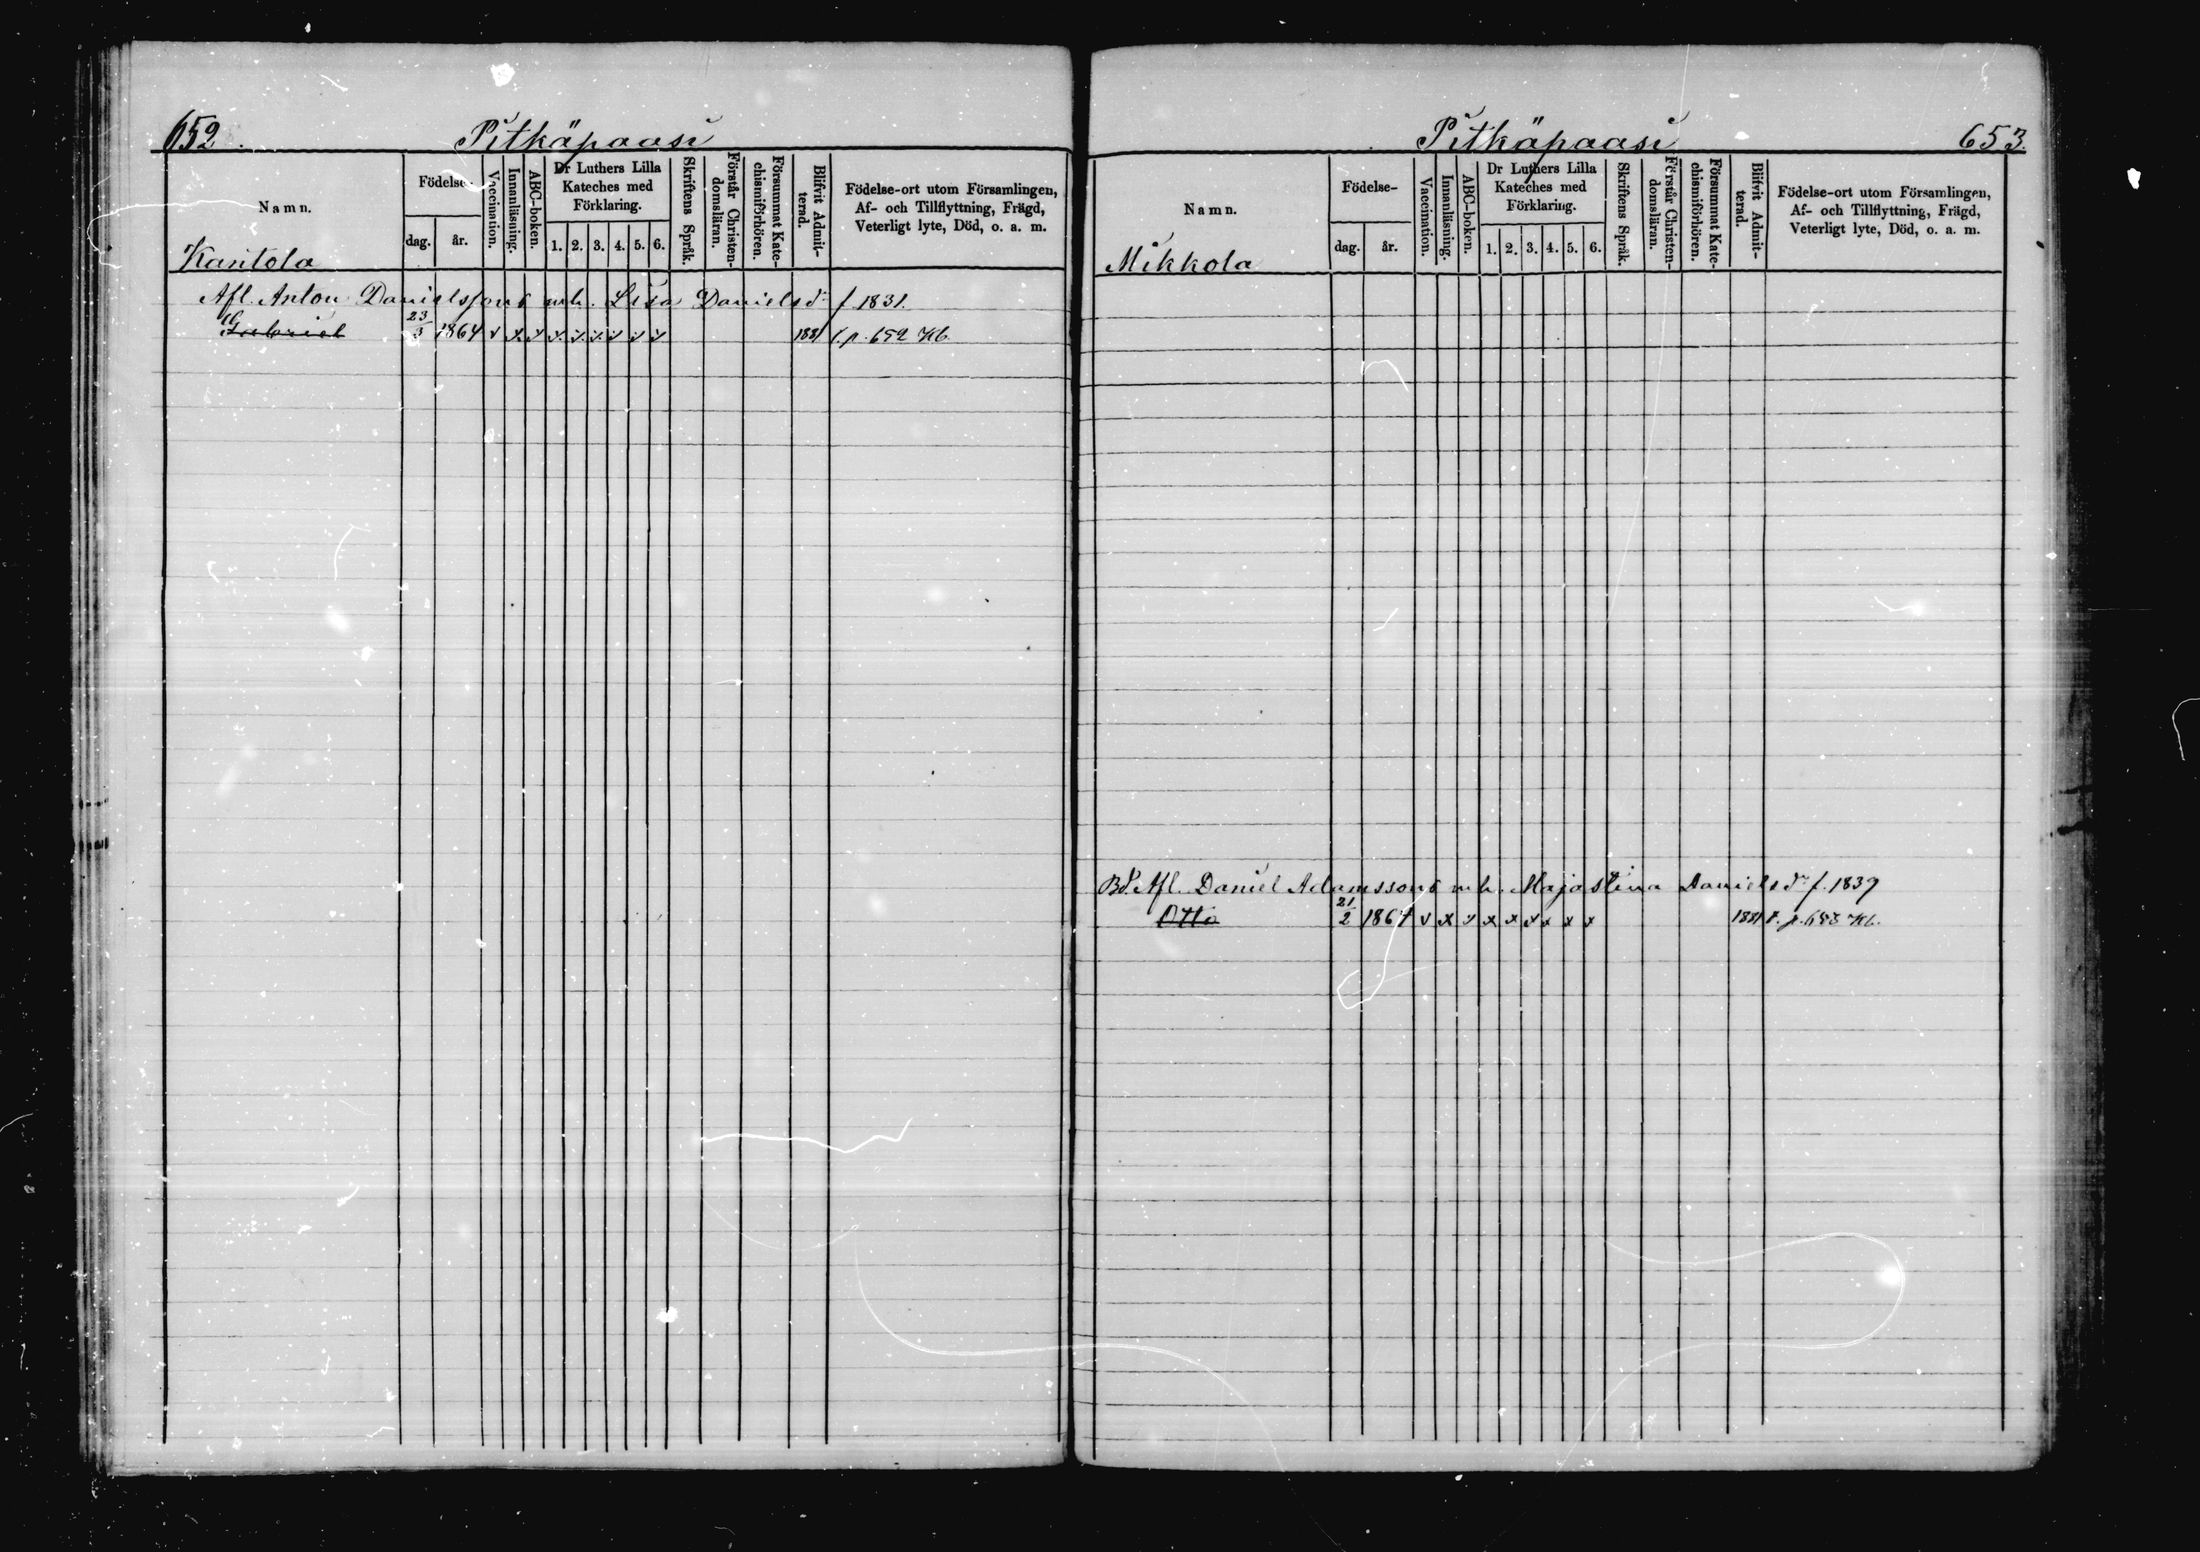 652.
Pitkäpaasi
Namn.
Födelse-
dag.
år.
Vaccination.
Innanläsning.
ABC-boken.
Dr Luthers Lilla
Kateches med
Förklaring.
1. 2. 3. 4. 5. 6.
Skriftens Språk.
Förstår Christen-
domsläran.
Försummat Kate-
chismiförhören.
Blifvit Admit-
terad.
Födelse-ort utom Församlingen,
Af- och Tillflyttning, Frägd,
Veterligt lyte, Död, o. a. m.
Kantola
Afl. Anton Danielssons mh. Lisa Danielsdr f 1831.
Gabriel 23/3 1864 v x x x x x x x x 1881 f. p. 652 Kb.
Pitkäpaasi
653.
Namn.
Födelse-
dag.
år.
Vaccination.
Innanläsning.
ABC-boken.
Dr Luthers Lilla
Kateches med
Förklaring.
1. 2. 3. 4. 5. 6.
Skriftens Språk.
Förstår Christen-
domsläran.
Försummat Kate-
chismiförhören.
Blifvit Admit-
terad.
Födelse-ort utom Församlingen,
Af- och Tillflyttning, Frägd,
Veterligt lyte, Död, o. a. m.
Mikkola
Bd. Afl. Daniel Adamssons mh. Maja Stina Danielsdr f. 1839
Otto 21/2 1864 v x x x x x x x x 1881 f. p. 653 Kb.